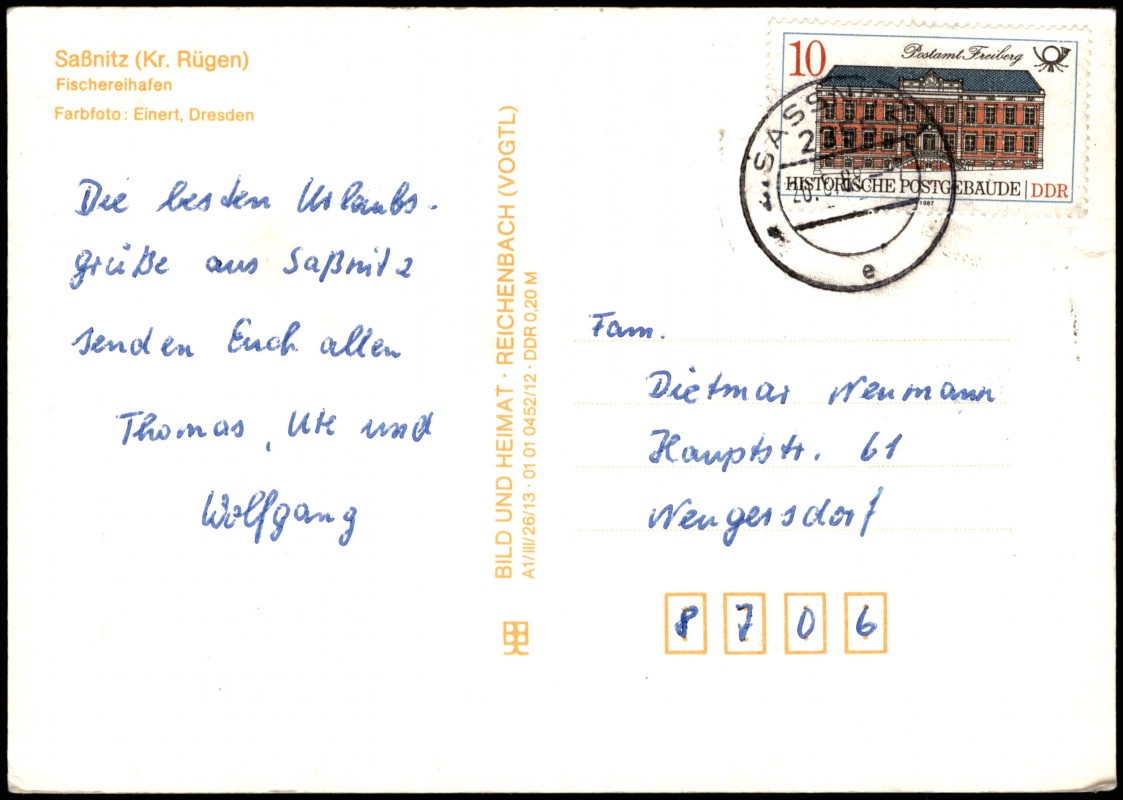 Saßnitz (Kr. Rügen)
Fischereihafen
Farbfoto: Einert, Dresden
Die besten Urlaubs-
grüße aus Saßnitz
senden Euch allen
Thomas, Ute und
Wolfgang
BILD UND HEIMAT · REICHENBACH (VOGTL)
A1/III/26/13 · 01 01 0452/12 · DDR 0,20 M
10
Postamt Freiberg
HISTORISCHE POSTGEBÄUDE DDR
1987
SASSN
e
Fam.
Dietmar Neumann
Hauptstr. 61
Neugersdorf
8706